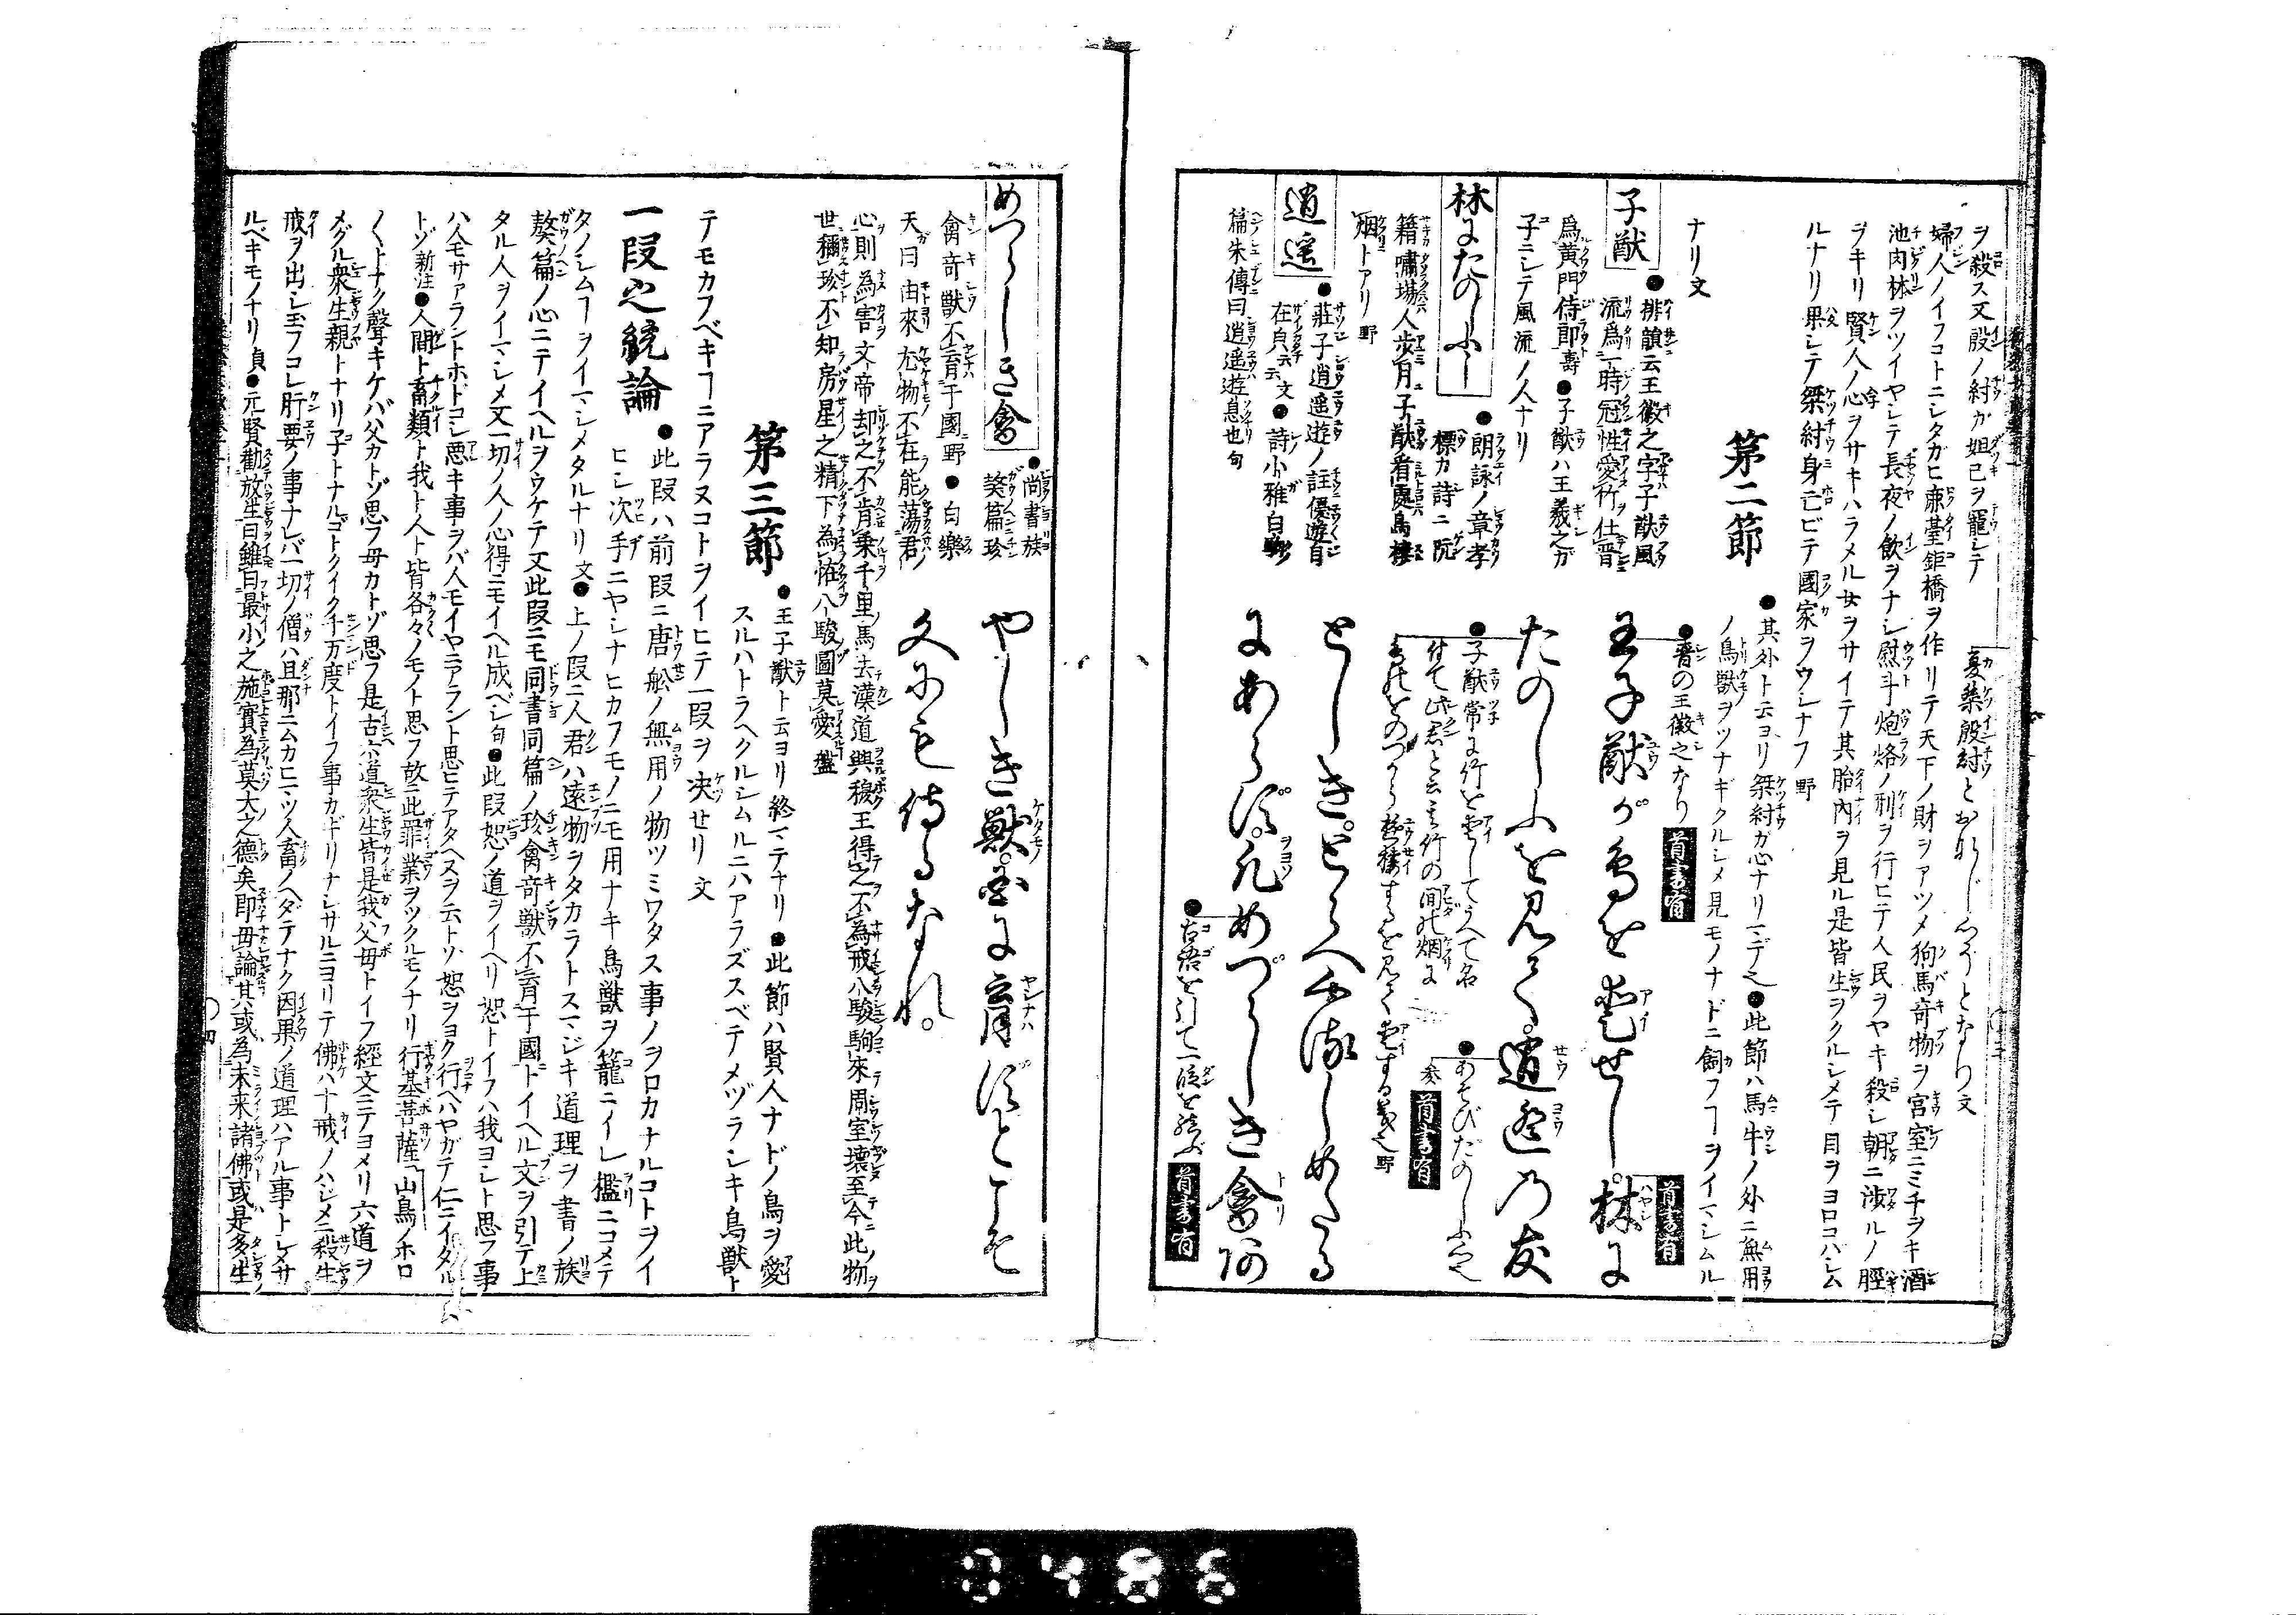 ヲ殺ス又殷ノ紂カ妲己ヲ寵シテ
夏桀殷紂とおなじ心ぞとなり文
婦人ノイフコトニシタガヒ鹿臺鉅橋ヲ作リテ天下ノ財ヲアツメ狗馬奇物ヲ宮室ニミチヲキ酒
池肉林ヲツイヤシテ長夜ノ飲ヲナシ慰斗炮烙ノ刑ヲ行ヒテ人民ヲヤキ殺シ朝ニ渉ルノ脛
ヲキリ賢人ノ心ヲサキハラメル女ヲサイテ其胎内ヲ見ル是皆生ヲクルシメテ目ヲヨロコバシム
ルナリ果シテ桀紂身亡ビテ國家ヲウシナフ 野
第二節
●其外ト云ヨリ桀紂ガ心ナリマデ也●此節ハ馬牛ノ外ニ無用
ノ鳥獣ヲツナギクルシメ見モノナドニ飼フヿヲイマシムル
ナリ文
子猷
●排韻云王徽之字子猷風
流爲一時冠性愛竹仕晋
爲黄門侍郎壽●子猷ハ王羲之が
子ニシテ風流ノ人ナリ
●晋の王徽之なり 首書有
王子猷が鳥を愛せし。林に
首書有
林にたのしふ
●朗詠ノ章孝
標カ詩ニ阮
籍嘯場人歩月子猷看處鳥棲
烟トアリ 野
たのしふを見て。逍遥の友
●子猷常に竹を愛してうへて名
付て此君と云其竹の間の烟に
鳥のをのづから遊棲するを見て愛する義也野
●あそびたのしふ心也
参 首書有
逍遥
●莊子逍遥遊ノ註優遊自
在皃云云文●詩小雅白駒
篇朱傳曰逍遥遊息也句
としき。とらへ
にあらず。凡めづらしき禽
●古語を引て一段を結ぶ 首書有
めつらしき禽
●尚書旅
獒篇珍
禽奇獣不育于國野●白樂
天曰由來尤物不在能蕩君
心則為害文帝却之不肯乗千里馬去漢道興穆王得之不為戒八駿駒來周室壞至今此物
世稱珍不知房星之精下為怪八駿圖莫愛 盤
やしき獣。国に育ずとこそ
文にも侍るなれ。
第三節
●王子猷ト云ヨリ終マテナリ●此節ハ賢人ナドノ鳥ヲ愛
スルハトラヘクルシムルニハアラズスベテメヅラシキ鳥獣ト
テモカフベキヿニアラヌコトヲイヒテ一段ヲ决せリ 文
一段之統論
●此段ハ前段ニ唐舩ノ無用ノ物ツミワタス事ノヲロカナルコトヲイ
ヒシ次手ニヤシナヒカフモノニモ用ナキ鳥獣ヲ籠ニイレ檻ニコメテ
タノシムヿヲイマシメタルナリ文●上ノ段ニ人君ハ遠物ヲタカラトスマジキ道理ヲ書ノ旅
獒篇ノ心ニテイヘルヲウケテ又此段ニモ同書同篇ノ珍禽竒獣不育于國トイヘル文ヲ引テ上
タル人ヲイマシメ又一切ノ人ノ心得ニモイヘル成ベシ句●此段恕ノ道ヲイヘリ恕トイフハ我ヨシト思フ事
ハ人モサアラントホドコシ悪キ事ヲバ人モイヤニアラント思ヒテアタヘヌヲ云トソ恕ヲヨク行ヘハヤガテ仁ニイタル
トゾ新注●人間ト畜類ト我ト人ト皆各々ノモノト思フ故ニ此罪業ヲツクルモノナリ行基菩薩山鳥ノホロ
〱トナク聲キケバ父カトゾ思フ母カトゾ思フ是古ハ六道衆生皆是我父母トイフ經文ニテヨメリ六道ヲ
メグル衆生親トナリ子トナルゴトクイク千万度トイフ事カギリナシサルニヨリテ佛ハ十戒ノハジメニ殺生
戒ヲ出シ玉フコレ肝要ノ事ナレバ一切ノ僧ハ且那ニムカヒマツ人畜ノヘダテナク因果ノ道理ハアル事トシラサ
ルベキモノナリ貞●元賢勸放生曰雖曰最小之施實為莫大之德矣即毋論其或為未来諸佛或是多生
四
0486